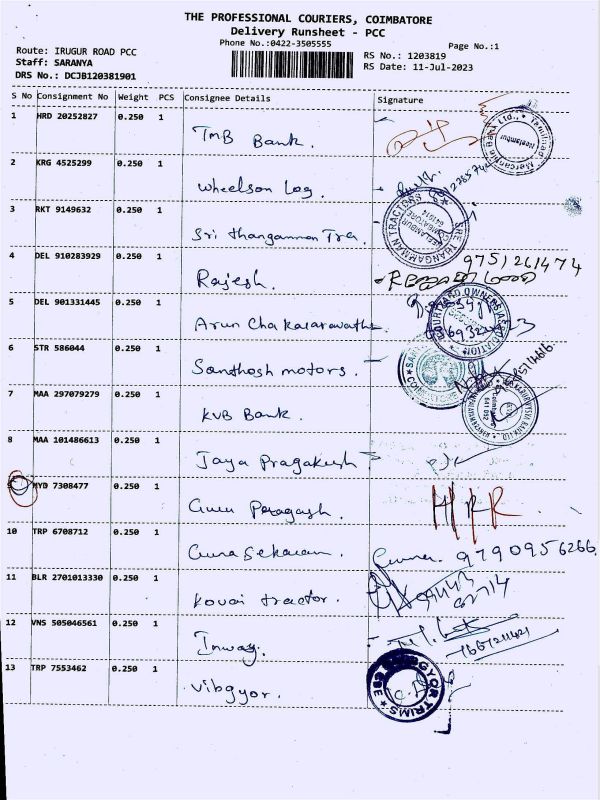 THE PROFESSIONAL COURIERS, COIMBATORE
Delivery Runsheet - PCC
Phone No.:0422-3505555
Page No.:1
Route: IRUGUR ROAD PCC
Staff: SARANYA
DRS No.: DCJB120381901
RS No.: 1203819
RS Date: 11-Jul-2023
S No Consignment No Weight PCS Consignee Details Signature
1 HRD 20252827 0.250 1 TMB Bank.
2 KRG 4525299 0.250 1 Wheelson Log.
3 RKT 9149632 0.250 1 Sri thangamman Tra.
4 DEL 910283929 0.250 1 Rajesh. 9751261474
5 DEL 901331445 0.250 1 Arun Chakararavathi
6 STR 586044 0.250 1 Santhosh motors.
7 MAA 297079279 0.250 1 KVB Bank.
8 MAA 101486613 0.250 1 Jaya Pragakesh
9 MYD 7308477 0.250 1 Guru Peragash. HRR
10 TRP 6708712 0.250 1 Gunasekaran. Gunna. 9790956266
11 BLR 2701013330 0.250 1 Kovai tractor.
12 VNS 505046561 0.250 1 Inway.
13 TRP 7553462 0.250 1 Vibgyor.